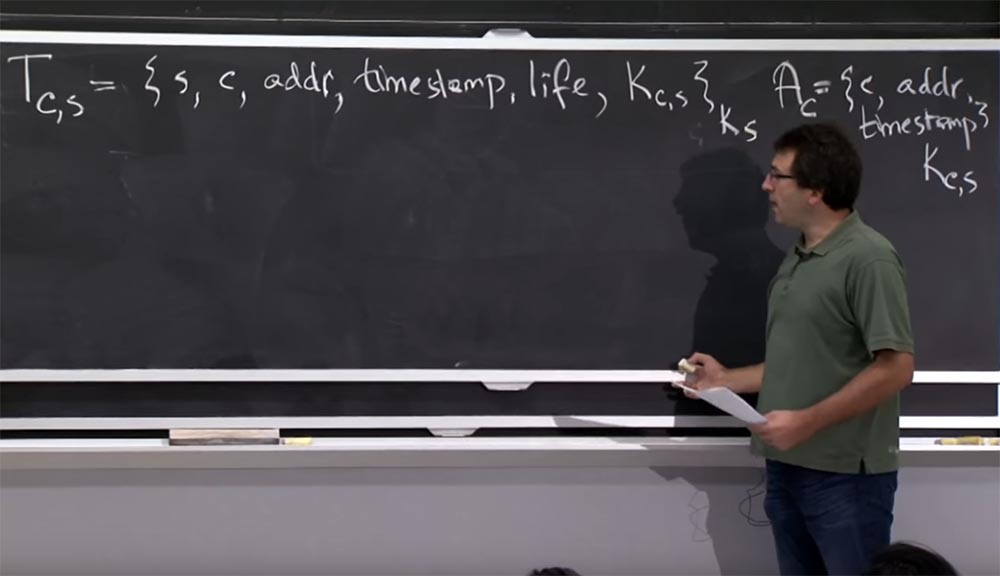 T_{c,s} = {s, c, addr, timestamp, life, K_{c,s}}_{K_s}
A_c = {c, addr,
timestamp}
K_{c,s}